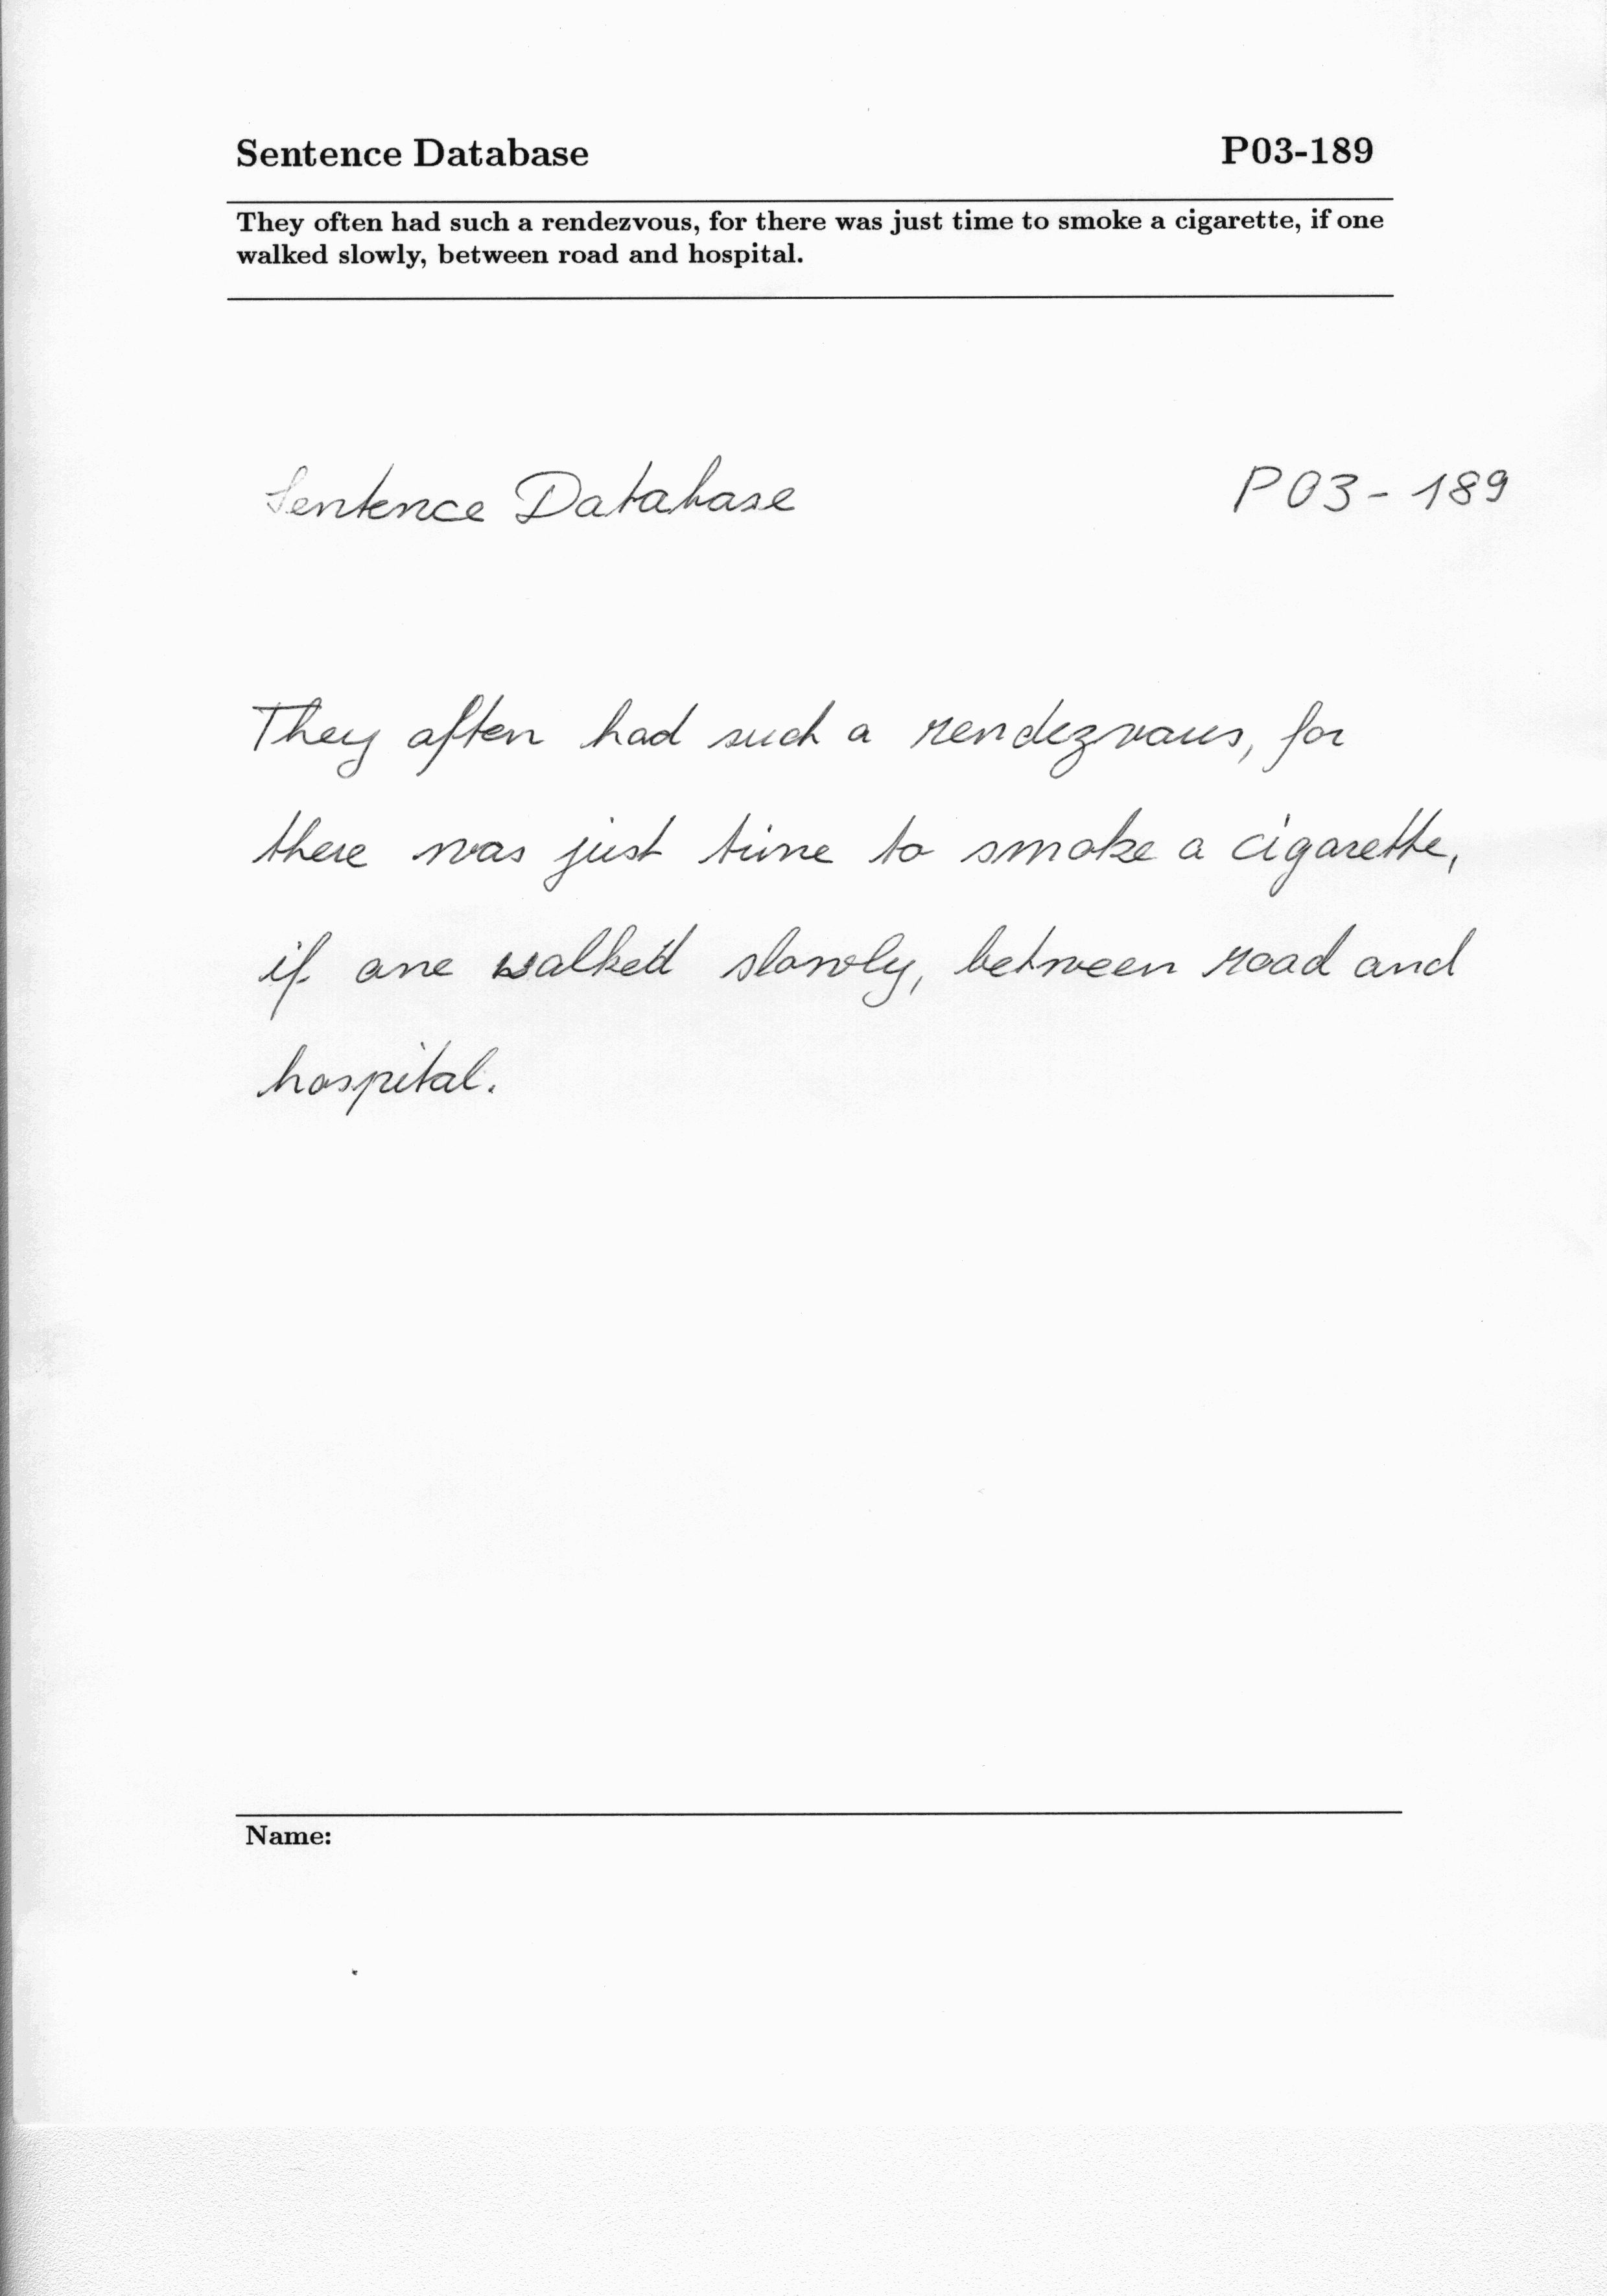 Sentence Database P03-189
They often had such a rendezvous, for there was just time to smoke a cigarette, if one
walked slowly, between road and hospital.
Sentence Database P03-189
They often had such a rendezvous, for
there was just time to smoke a cigarette,
if one walked slowly, between road and
hospital.
Name: